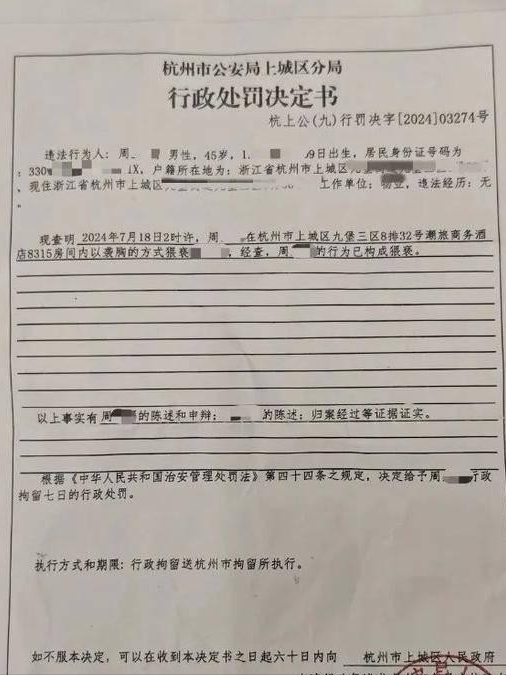 杭州市公安局上城区分局
行政处罚决定书
杭上公(九)行罚决字[2024]03274号
违法行为人：周 男性，45岁，1 9日出生，居民身份证号码为
：330 1X，户籍所在地为：浙江省杭州市上城区
，现住浙江省杭州市上城区 工作单位：物业，违法经历：无
。
现查明 2024年7月18日2时许，周 在杭州市上城区九堡三区8排32号潮旅商务酒
店8315房间内以袭胸的方式猥亵 ，经查，周 的行为已构成猥亵。
以上事实有 周 的陈述和申辩； 的陈述；归案经过等证据证实。
根据《中华人民共和国治安管理处罚法》第四十四条之规定，决定给予周 行政
拘留七日的行政处罚。
执行方式和期限：行政拘留送杭州市拘留所执行。
如不服本决定，可以在收到本决定书之日起六十日内向 杭州市上城区人民政府